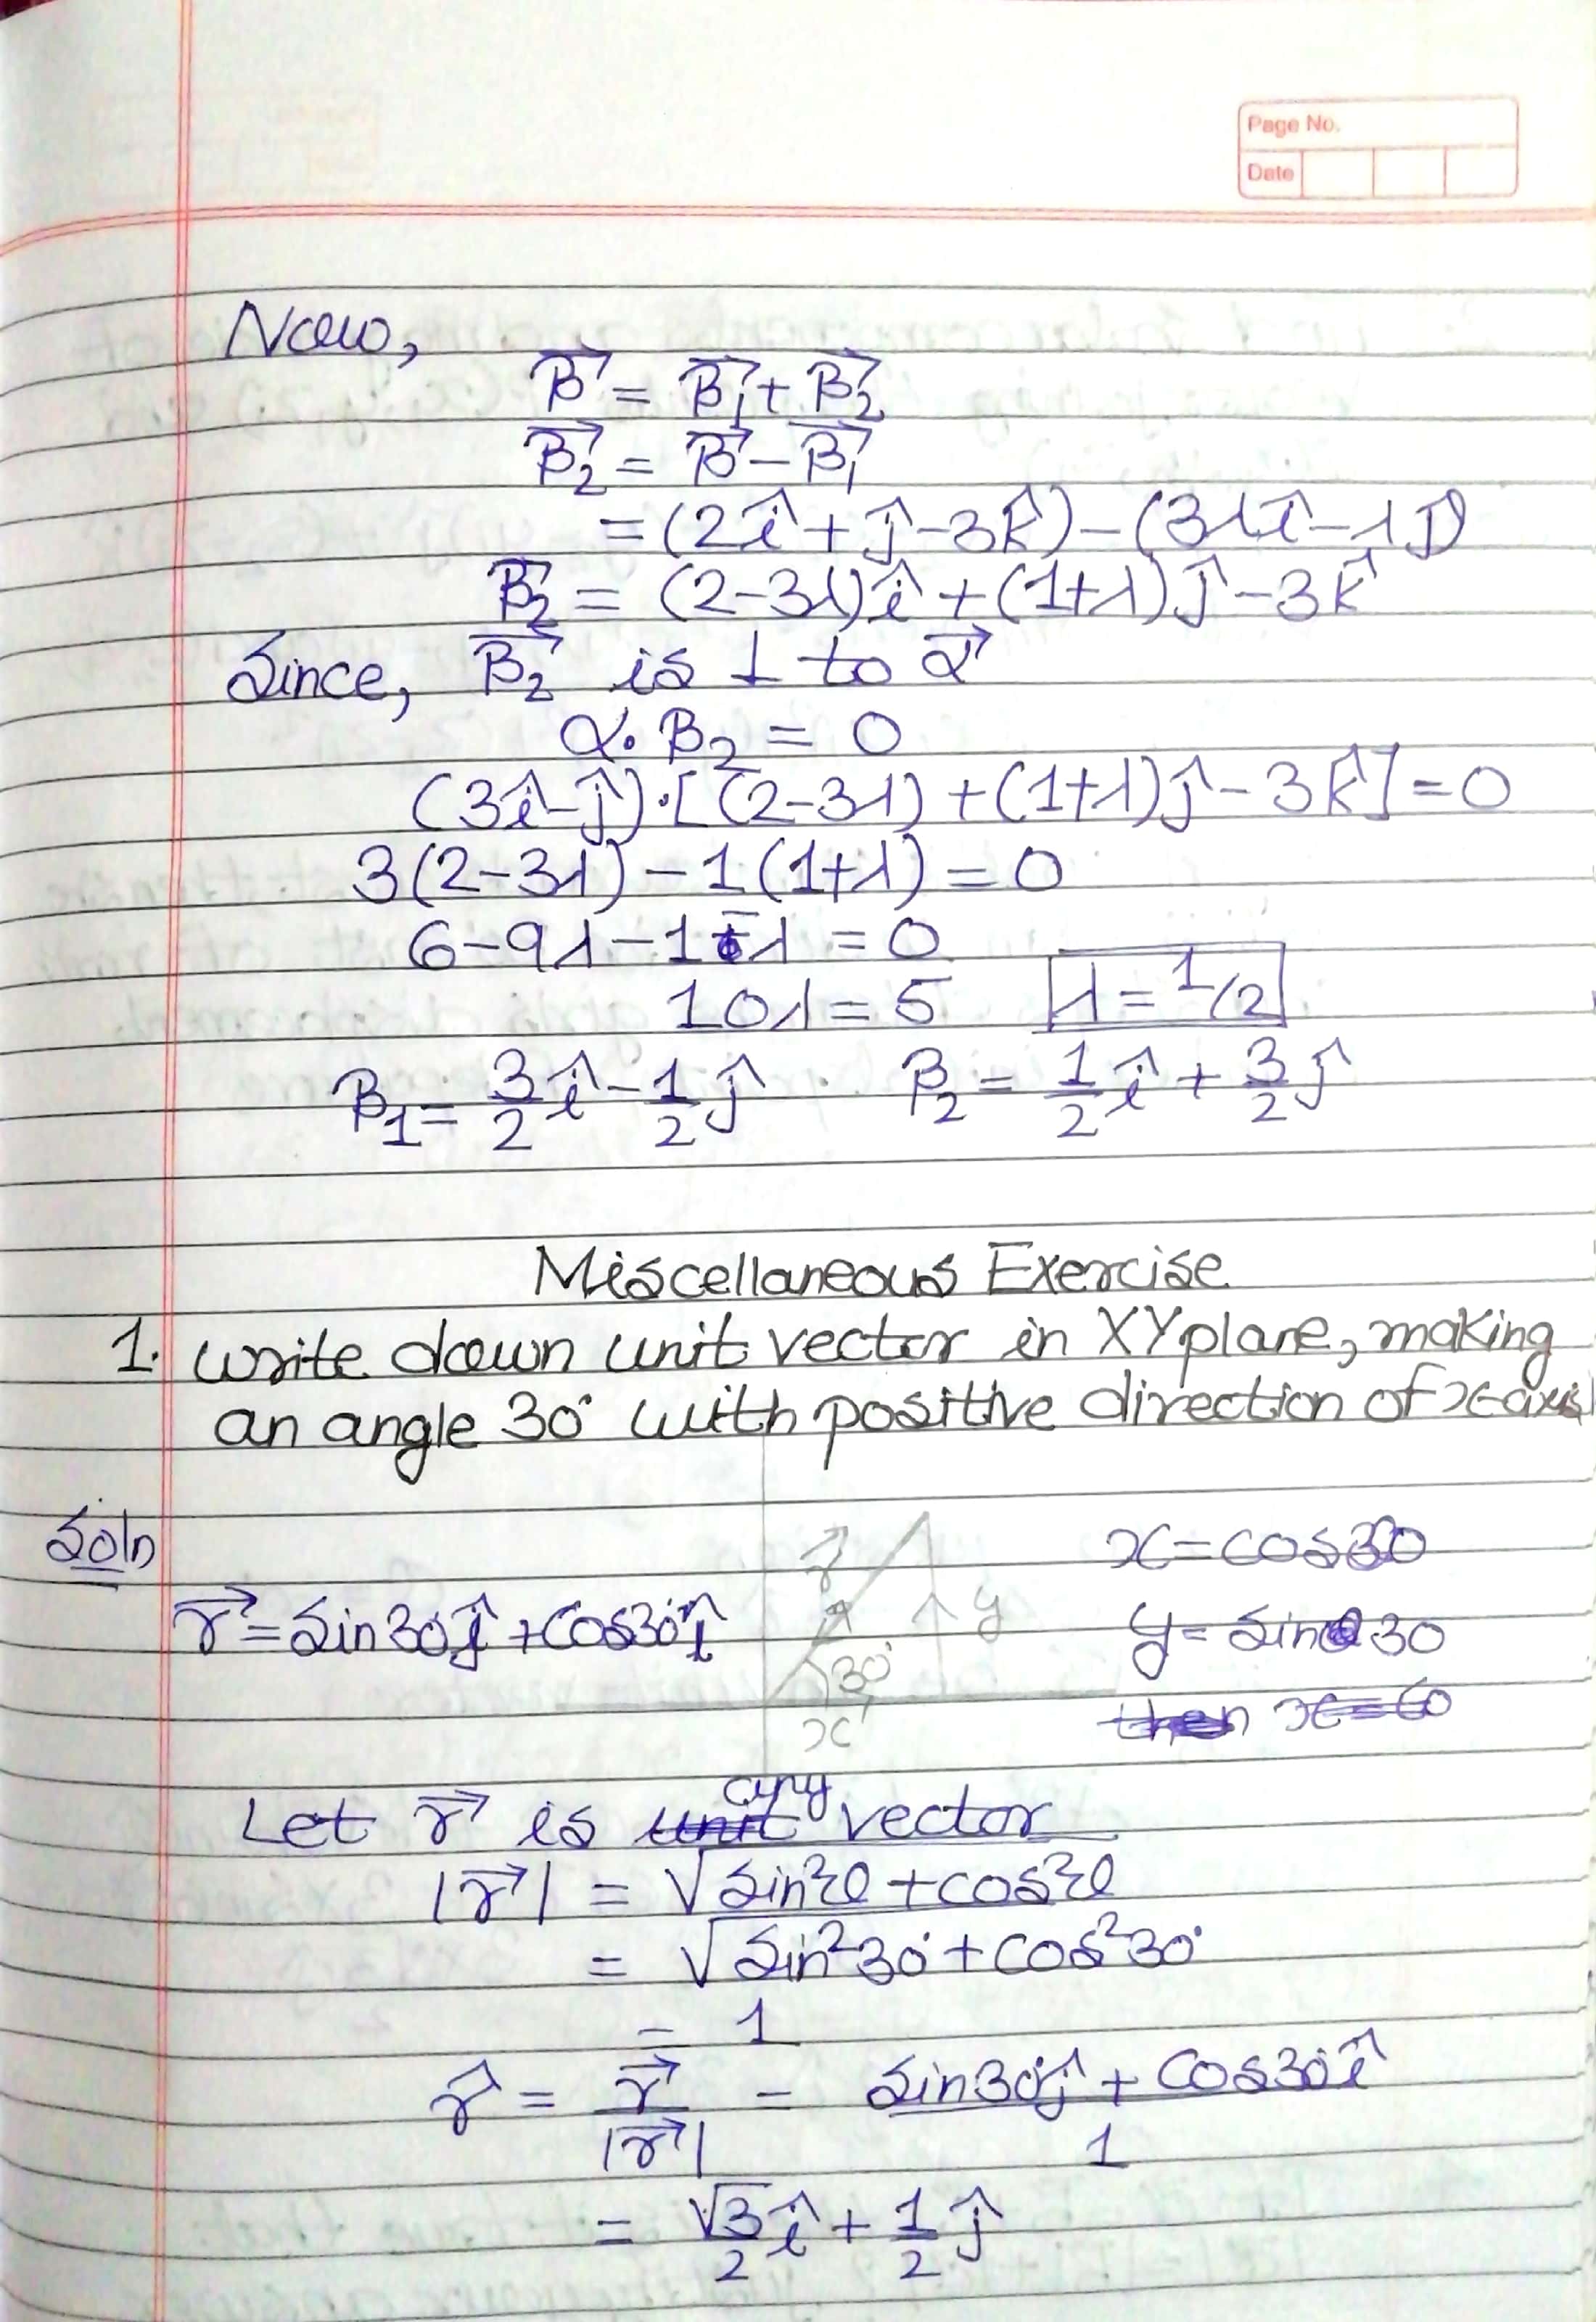 Page No.
Date
Now,
B⃗ = B⃗₁ + B⃗₂
B⃗₂ = B⃗ - B⃗₁
= (2î + ĵ - 3k̂) - (3λî - λĵ)
B⃗₂ = (2-3λ)î + (1+λ)ĵ - 3k̂
Since, B⃗₂ is ⊥ to α⃗
α · B₂ = 0
(3î - ĵ)·[(2-3λ) + (1+λ)ĵ - 3k̂] = 0
3(2-3λ) - 1(1+λ) = 0
6 - 9λ - 1 - λ = 0
10λ = 5 λ = 1/2
B₁ = 3/2 î - 1/2 ĵ . B₂ = 1/2 î + 3/2 ĵ
Miscellaneous Exercise
1. Write down unit vector in XY plane, making
an angle 30° with positive direction of x-axis
Soln
r⃗ = sin30°ĵ + cos30°î
r⃗
y
30°
x
x = cos30
y = sin 30
then x = 60
Let r⃗ is any vector
|r⃗| = √sin²θ + cos²θ
= √sin²30° + cos²30°
= 1
r̂ = r⃗/|r⃗| = sin30°ĵ + cos30°î / 1
= √3/2 î + 1/2 ĵ